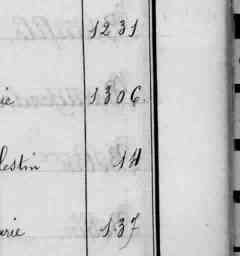 1231
ie 1306.
lestin 14
arie 137